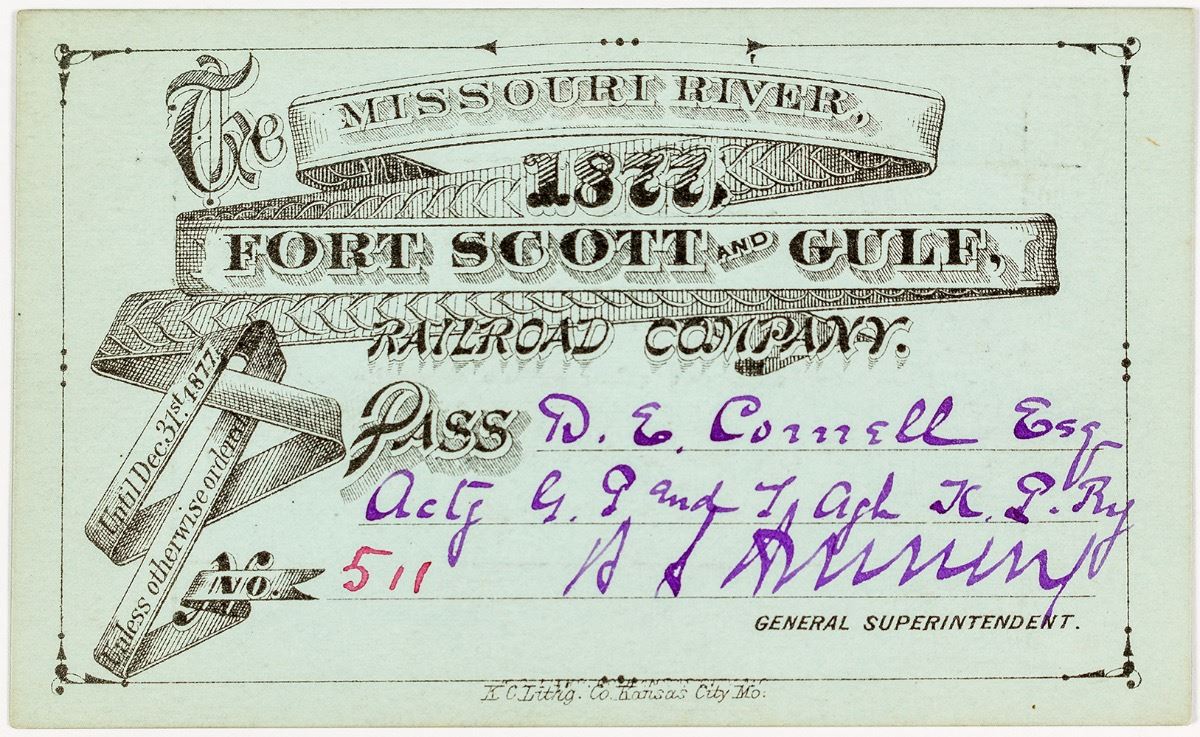 The MISSOURI RIVER,
1877,
FORT SCOTT AND GULF,
RAILROAD COMPANY.
Until Dec. 31st. 1877.
Unless otherwise ordered
PASS D. E. Cornell Esq
Actg G. P. and T. Agt K. P. Ry
No. 511
GENERAL SUPERINTENDENT.
K C Lithg. Co. Kansas City Mo.